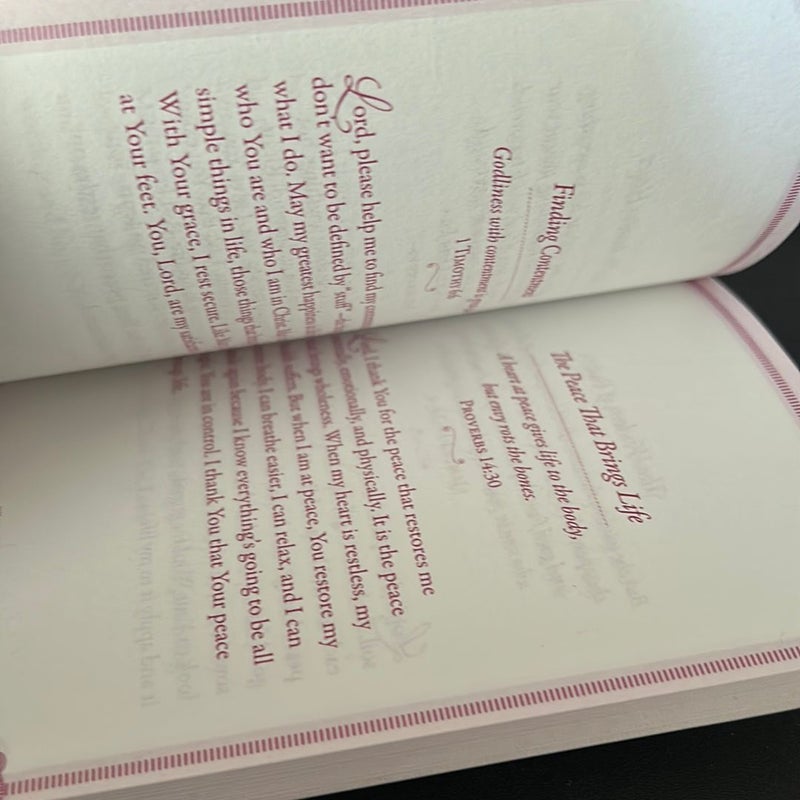 Finding Contentment
Godliness with contentment is
1 Timothy 6:6
Lord, please help me to find my
don't want to be defined by "stuff"—
what I do. May my greatest happiness
who You are and who I am in Christ.
simple things in life, those things
With Your grace, I rest secure. Like
at Your feet. You, Lord, are my
The Peace That Brings Life
A heart at peace gives life to the body,
but envy rots the bones.
Proverbs 14:30
I thank You for the peace that restores me
emotionally, and physically. It is the peace
wholeness. When my heart is restless, my
suffers. But when I am at peace, You restore my
body. I can breathe easier, I can relax, and I can
because I know everything's going to be all
You are in control. I thank You that Your peace
life.